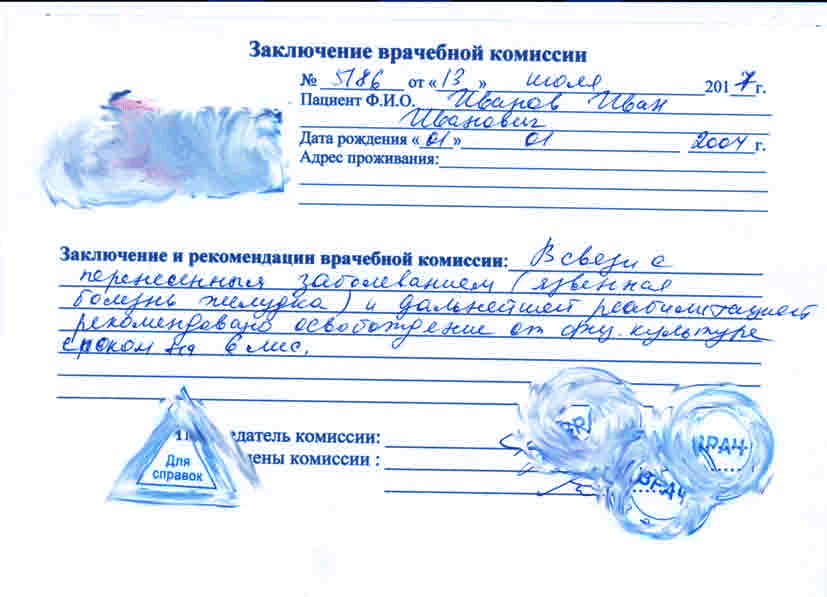 Заключение врачебной комиссии
№ 5186 от «13» июля 2017г.
Пациент Ф.И.О. Иванов Иван
Иванович
Дата рождения «01» 01 2004 г.
Адрес проживания:
Заключение и рекомендации врачебной комиссии: В связи с
перенесенным заболеванием (язвенная
болезнь желудка) и дальнейшей реабилитацией
рекомендовано освобождение от физ. культуре
сроком на 6 мес.
датель комиссии:
ены комиссии :
Для
справок
ВРАЧ
ВРАЧ